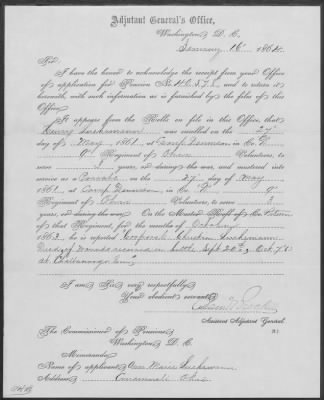 Adjutant General's Office,
Washington, D. C.
January 16" 1864.
Sir:
I have the honor to acknowledge the receipt from your Office
of application for Pension No. and to return it
herewith, with such information as is furnished by the files of this
Office.
It appears from the Rolls on file in this Office, that
Henry was enrolled on the 27"
day of May, 1861, at Camp Dennison in Co.
9" Regiment of Ohio Volunteers, to
serve years, or during the war, and mustered into
service as a Private on the 27 day of May
1861, at Camp Dennison, in Co. 9"
Regiment of Ohio Volunteers, to serve 3
years, or during the war. On the Muster Roll of Co.
of that Regiment, for the months of
1863, he is reported Corporal
Died of wounds received in battle Sept 20th, Oct. 7th
at Chattanooga Tenn
I am, Sir, very respectfully,
Your obedient servant,
Assistant Adjutant General.
The Commissioner of Pensions,
Washington, D. C.
Memoranda:
Name of applicant, Maria
Address, Cincinnati Ohio